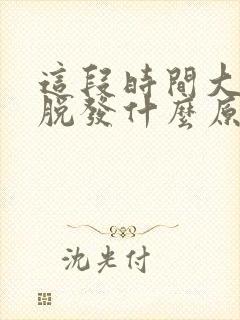 這段時間大
脫發什麼原
沈光付